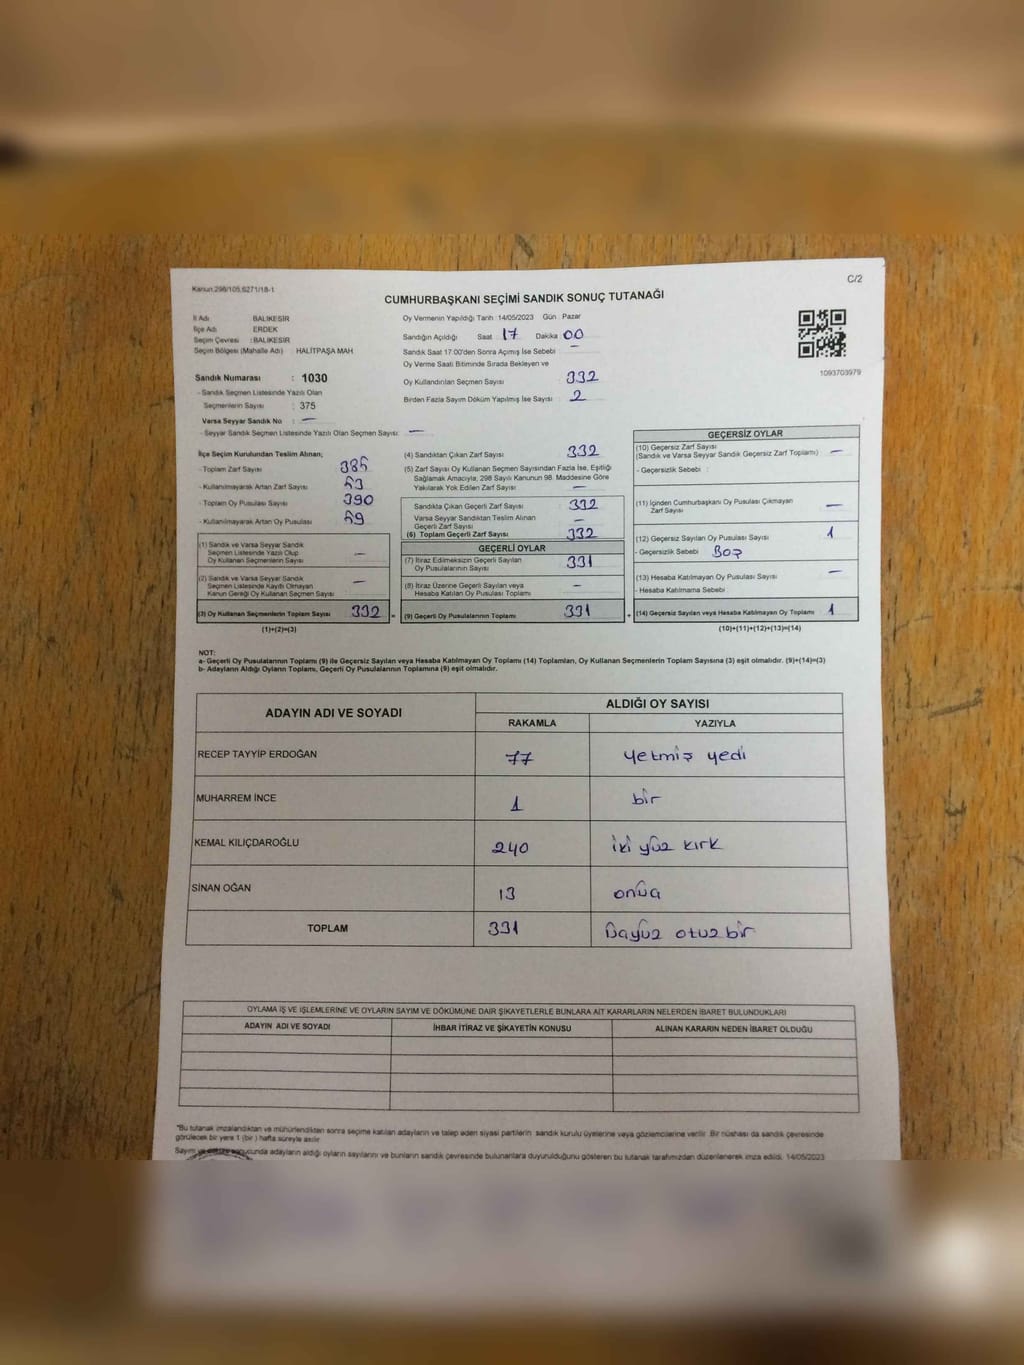 Kanun:298/105,6271/18-1
C/2
CUMHURBAŞKANI SEÇİMİ SANDIK SONUÇ TUTANAĞI
İl Adı BALIKESİR
İlçe Adı ERDEK
Seçim Çevresi :BALIKESİR
Seçim Bölgesi (Mahalle Adı) HALİTPAŞA MAH
Sandık Numarası : 1030
- Sandık Seçmen Listesinde Yazılı Olan
Seçmenlerin Sayısı : 375
Varsa Seyyar Sandık No : —
- Seyyar Sandık Seçmen Listesinde Yazılı Olan Seçmen Sayısı: —
Oy Vermenin Yapıldığı Tarih :14/05/2023 Gün : Pazar
Sandığın Açıldığı Saat : 17 Dakika : 00
Sandık Saat 17.00'den Sonra Açılmış İse Sebebi : —
Oy Verme Saati Bitiminde Sırada Bekleyen ve
Oy Kullandırılan Seçmen Sayısı : 332
Birden Fazla Sayım Döküm Yapılmış İse Sayısı : 2
1093703979
İlçe Seçim Kurulundan Teslim Alınan;
- Toplam Zarf Sayısı : 385
- Kullanılmayarak Artan Zarf Sayısı : 53
- Toplam Oy Pusulası Sayısı : 390
- Kullanılmayarak Artan Oy Pusulası :
(1) Sandık ve Varsa Seyyar Sandık
Seçmen Listesinde Yazılı Olup
Oy Kullanan Seçmenlerin Sayısı —
(2) Sandık ve Varsa Seyyar Sandık
Seçmen Listesinde Kaydı Olmayan
Kanun Gereği Oy Kullanan Seçmen Sayısı —
(3) Oy Kullanan Seçmenlerin Toplam Sayısı 332 =
(1)+(2)=(3)
(4) Sandıktan Çıkan Zarf Sayısı : 332
(5) Zarf Sayısı Oy Kullanan Seçmen Sayısından Fazla İse, Eşitliği
Sağlamak Amacıyla; 298 Sayılı Kanunun 98. Maddesine Göre
Yakılarak Yok Edilen Zarf Sayısı : —
Sandıkta Çıkan Geçerli Zarf Sayısı : 332
Varsa Seyyar Sandıktan Teslim Alınan
Geçerli Zarf Sayısı : —
(6) Toplam Geçerli Zarf Sayısı : 332
GEÇERLİ OYLAR
(7) İtiraz Edilmeksizin Geçerli Sayılan
Oy Pusulalarının Sayısı : 331
(8) İtiraz Üzerine Geçerli Sayılan veya
Hesaba Katılan Oy Pusulası Toplamı : —
(9) Geçerli Oy Pusulalarının Toplamı : 331 +
GEÇERSİZ OYLAR
(10) Geçersiz Zarf Sayısı
(Sandık ve Varsa Seyyar Sandık Geçersiz Zarf Toplamı) : —
- Geçersizlik Sebebi :
(11) İçinden Cumhurbaşkanı Oy Pusulası Çıkmayan
Zarf Sayısı : —
(12) Geçersiz Sayılan Oy Pusulası Sayısı : 1
- Geçersizlik Sebebi : Boş
(13) Hesaba Katılmayan Oy Pusulası Sayısı : —
- Hesaba Katılmama Sebebi :
(14) Geçersiz Sayılan veya Hesaba Katılmayan Oy Toplamı : 1
(10)+(11)+(12)+(13)=(14)
NOT:
a- Geçerli Oy Pusulalarının Toplamı (9) ile Geçersiz Sayılan veya Hesaba Katılmayan Oy Toplamı (14) Toplamları, Oy Kullanan Seçmenlerin Toplam Sayısına (3) eşit olmalıdır. (9)+(14)=(3)
b- Adayların Aldığı Oyların Toplamı, Geçerli Oy Pusulalarının Toplamına (9) eşit olmalıdır.
ADAYIN ADI VE SOYADI ALDIĞI OY SAYISI
RAKAMLA YAZIYLA
RECEP TAYYİP ERDOĞAN 77 yetmiş yedi
MUHARREM İNCE 1 bir
KEMAL KILIÇDAROĞLU 240 iki yüz kırk
SİNAN OĞAN 13 onüç
TOPLAM 331 Üçyüz otuz bir
OYLAMA İŞ VE İŞLEMLERİNE VE OYLARIN SAYIM VE DÖKÜMÜNE DAİR ŞİKAYETLERLE BUNLARA AİT KARARLARIN NELERDEN İBARET BULUNDUKLARI
ADAYIN ADI VE SOYADI İHBAR İTİRAZ VE ŞİKAYETİN KONUSU ALINAN KARARIN NEDEN İBARET OLDUĞU
"Bu tutanak imzalandıktan ve mühürlendikten sonra seçime katılan adayların ve talep eden siyasi partilerin sandık kurulu üyelerine veya gözlemcilerine verilir. Bir nüshası da sandık çevresinde
görülecek bir yere 1 (bir) hafta süreyle asılır.
Sayım ve sonucunda adayların aldığı oyların sayılarını ve bunların sandık çevresinde bulunanlara duyurulduğunu gösteren bu tutanak tarafımızdan düzenlenerek imza edildi. 14/05/2023